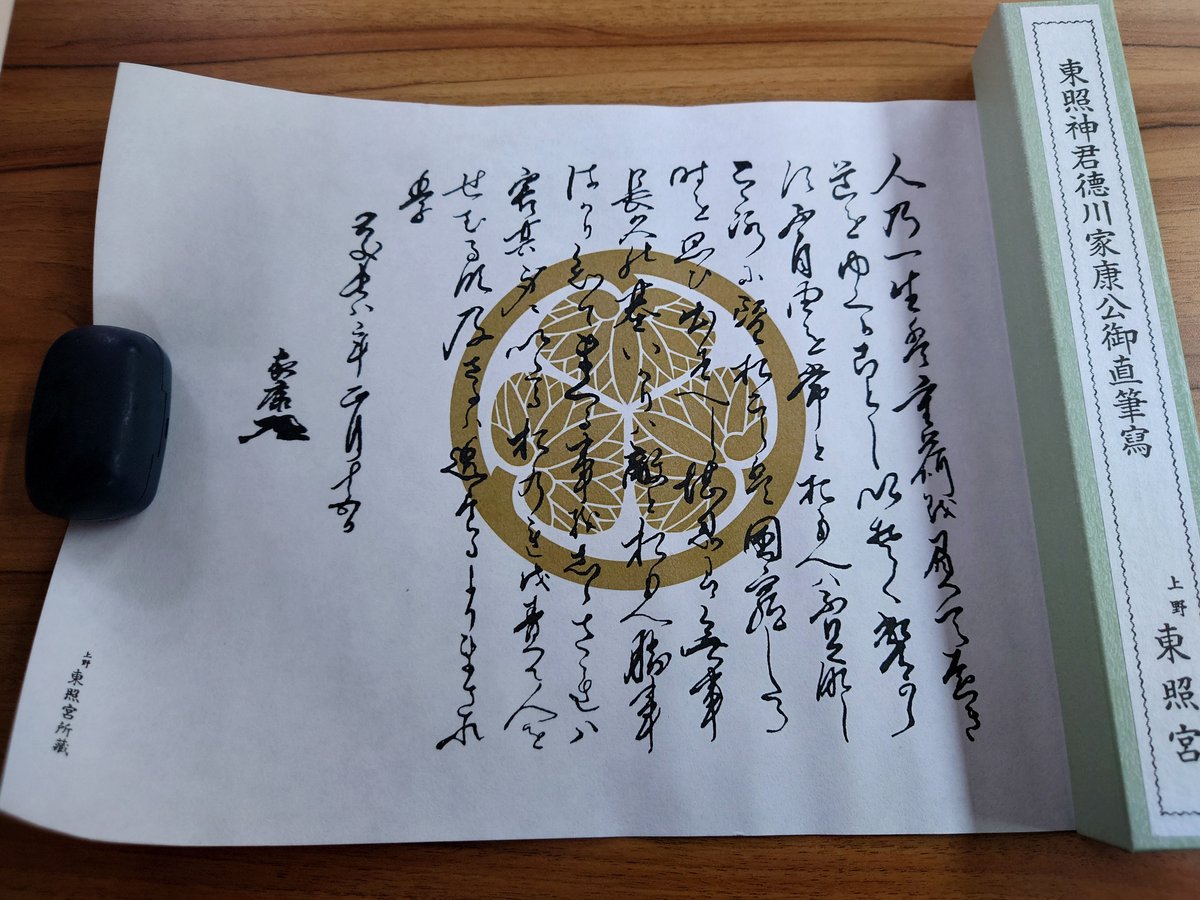 東照神君德川家康公御直筆寫
上野 東照宮
人乃一生は重荷を負て遠き
道をゆくかことしいそくへから
す不自由を常とおもへは不足なし
こゝろに望おこらは困窮したる
時を思ひ出すへし堪忍は無事
長久の基いかりは敵とおもへ勝事
はかり知てまくる事をしらされは
害其身にいたるおのれを責て人を
せむるな及さるは過たるよりまされ
り
慶長八年正月十五日
家康
上野 東照宮所藏